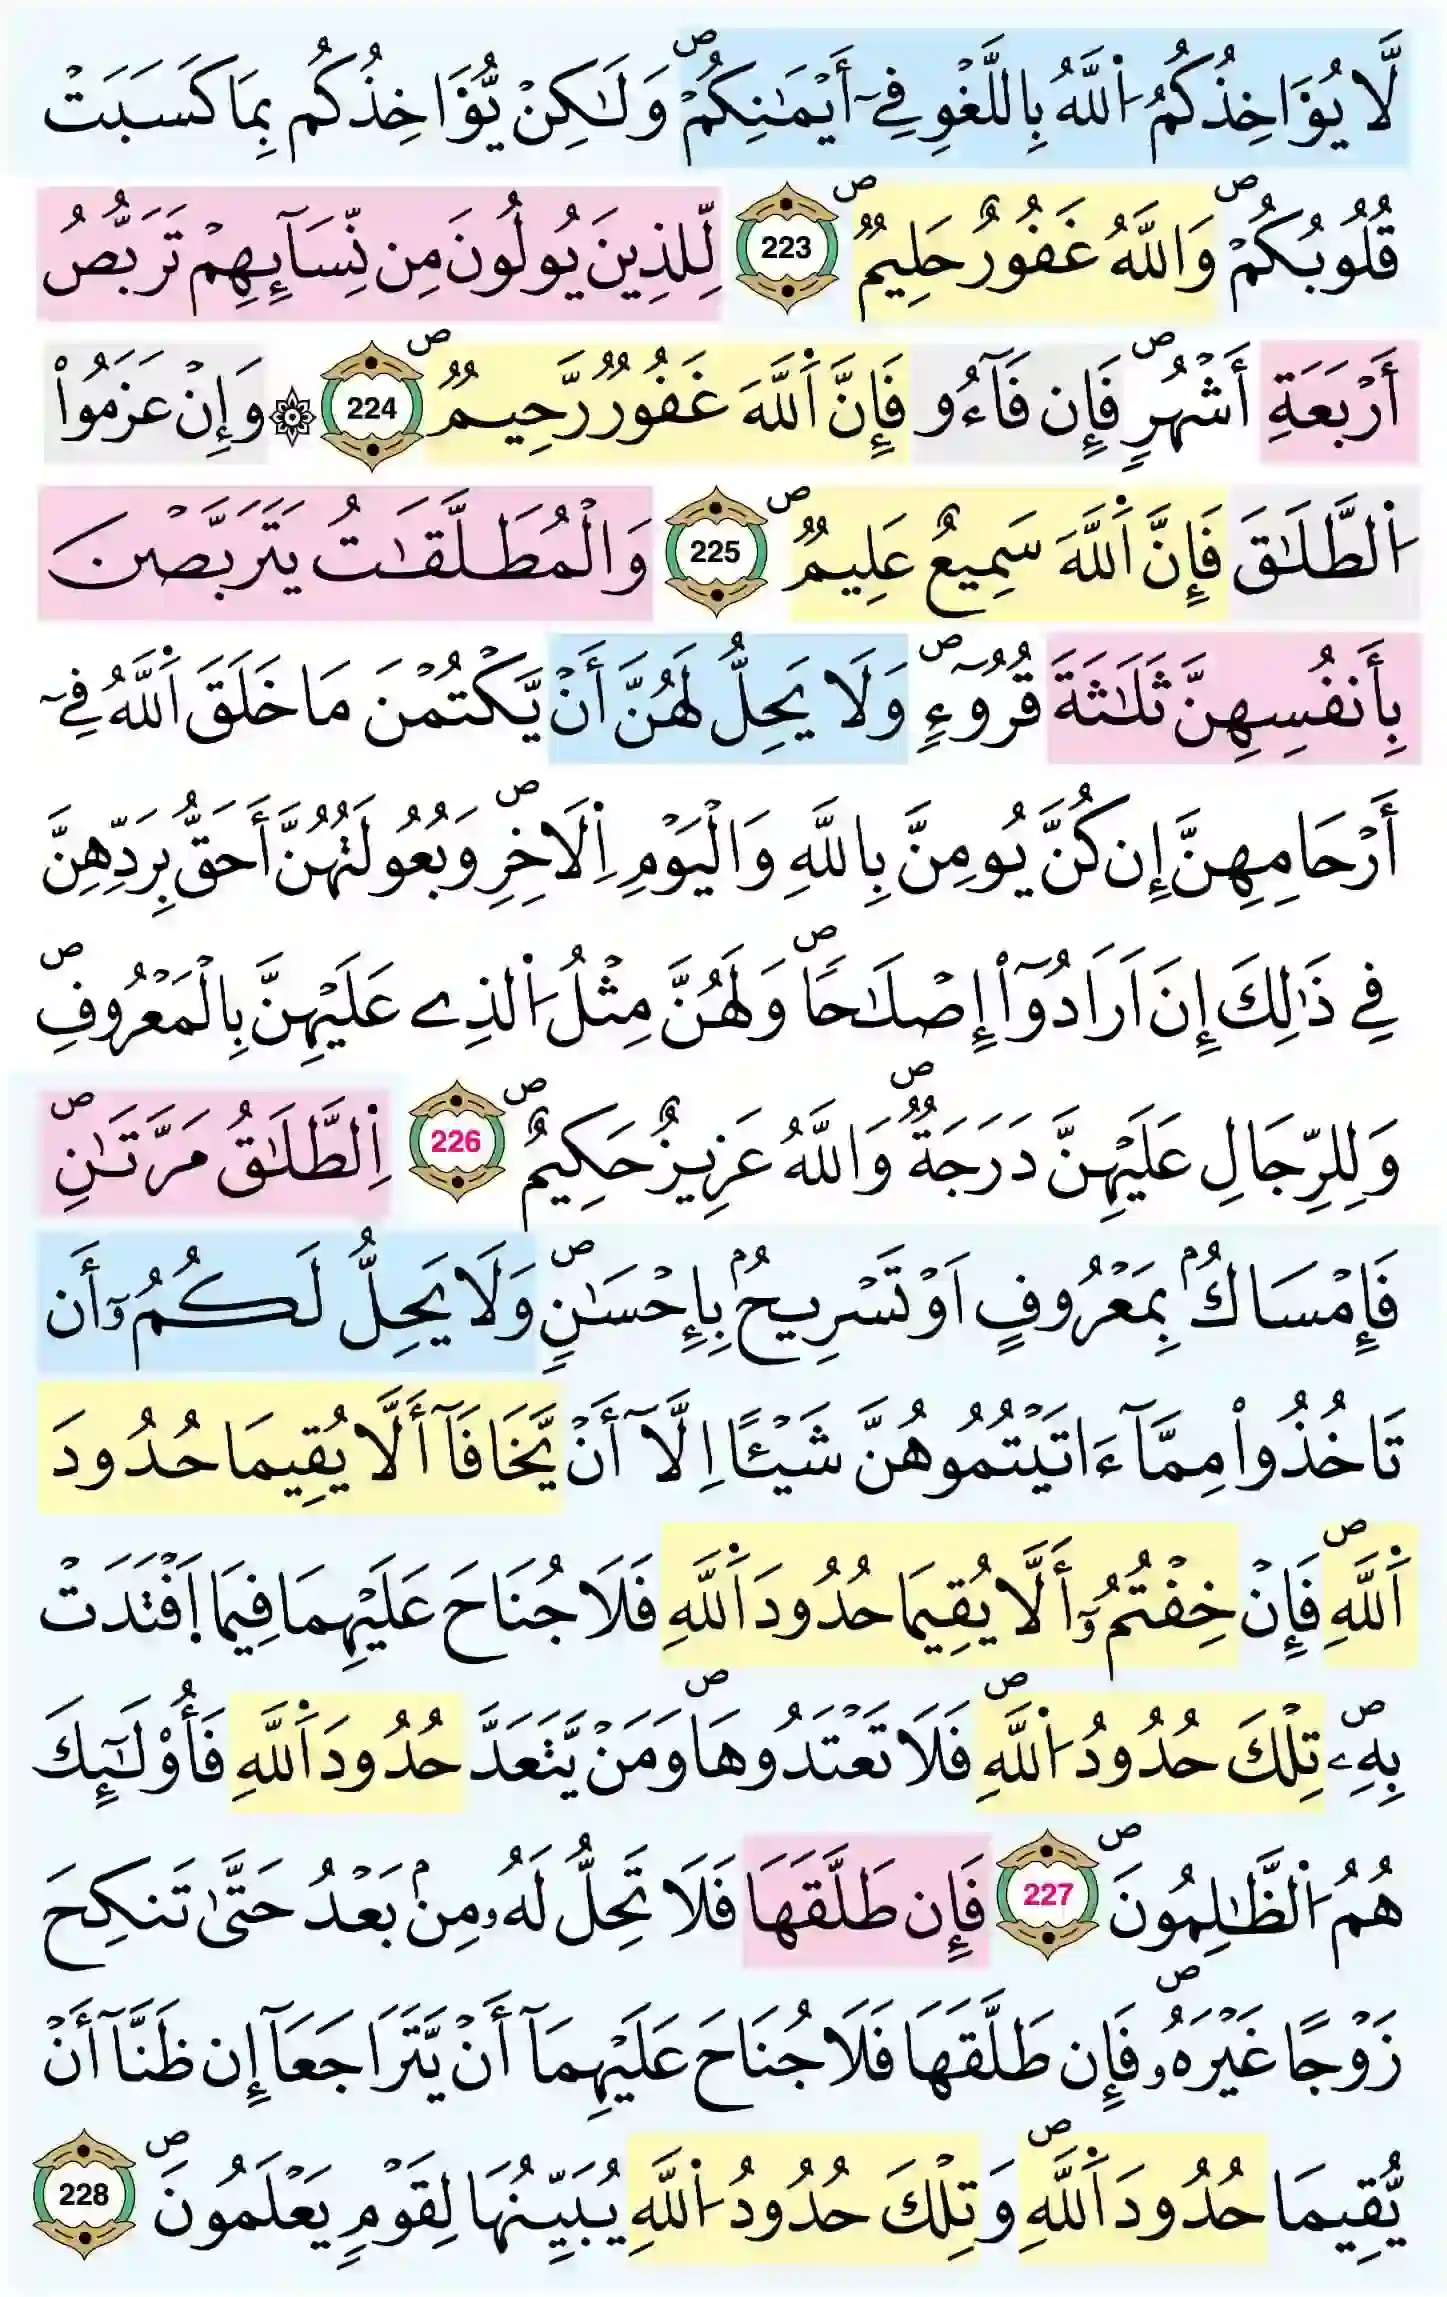 لَّا يُؤَاخِذُكُمُ اُ۬للَّهُ بِاللَّغْوِ فِےٓ أَيْمَٰنِكُمْۖ وَلَٰكِنْ يُّؤَاخِذُكُم بِمَا كَسَبَتْ
قُلُوبُكُمْۖ وَاللَّهُ غَفُورٌ حَلِيمٞۖ 223 لِّلذِينَ يُولُونَ مِن نِّسَآئِهِمْ تَرَبُّصُ
أَرْبَعَةِ أَشْهُرٖۖ فَإِن فَآءُو فَإِنَّ اَ۬للَّهَ غَفُورٞ رَّحِيمٞۖ 224 ۞ وَإِنْ عَزَمُواْ
اُ۬لطَّلَٰقَ فَإِنَّ اَ۬للَّهَ سَمِيعٌ عَلِيمٞۖ 225 وَالْمُطَلَّقَٰتُ يَتَرَبَّصْنَ
بِأَنفُسِهِنَّ ثَلَٰثَةَ قُرُوٓءٖۖ وَلَا يَحِلُّ لَهُنَّ أَنْ يَّكْتُمْنَ مَا خَلَقَ اَ۬للَّهُ فِےٓ
أَرْحَامِهِنَّ إِن كُنَّ يُومِنَّ بِاللَّهِ وَالْيَوْمِ اِ۬لَاخِرِۖ وَبُعُولَتُهُنَّ أَحَقُّ بِرَدِّهِنَّ
فِے ذَٰلِكَ إِنَ اَرَادُوٓاْ إِصْلَٰحاٗۖ وَلَهُنَّ مِثْلُ اُ۬لذِے عَلَيْهِنَّ بِالْمَعْرُوفِۖ
وَلِلرِّجَالِ عَلَيْهِنَّ دَرَجَةٞۖ وَاللَّهُ عَزِيزٌ حَكِيمٌۖ 226 اِ۬لطَّلَٰقُ مَرَّتَٰنِۖ
فَإِمْسَاكُۢ بِمَعْرُوفٍ اَوْ تَسْرِيحُۢ بِإِحْسَٰنٖۖ وَلَا يَحِلُّ لَكُمُۥٓ أَن
تَاخُذُواْ مِمَّآ ءَاتَيْتُمُوهُنَّ شَيْـًٔا اِلَّآ أَنْ يَّخَافَآ أَلَّا يُقِيمَا حُدُودَ
اَ۬للَّهِۖ فَإِنْ خِفْتُمُۥٓ أَلَّا يُقِيمَا حُدُودَ اَ۬للَّهِ فَلَا جُنَاحَ عَلَيْهِمَا فِيمَا اَ۪فْتَدَتْ
بِهِۦۖ تِلْكَ حُدُودُ اُ۬للَّهِۖ فَلَا تَعْتَدُوهَاۖ وَمَنْ يَّتَعَدَّ حُدُودَ اَ۬للَّهِ فَأُوْلَٰٓئِكَ
هُمُ اُ۬لظَّٰلِمُونَۖ 227 فَإِن طَلَّقَهَا فَلَا تَحِلُّ لَهُۥ مِنۢ بَعْدُ حَتَّىٰ تَنكِحَ
زَوْجاً غَيْرَهُۥۖ فَإِن طَلَّقَهَا فَلَا جُنَاحَ عَلَيْهِمَآ أَنْ يَّتَرَاجَعَآ إِن ظَنَّآ أَنْ
يُّقِيمَا حُدُودَ اَ۬للَّهِۖ وَتِلْكَ حُدُودُ اُ۬للَّهِ يُبَيِّنُهَا لِقَوْمٖ يَعْلَمُونَۖ 228